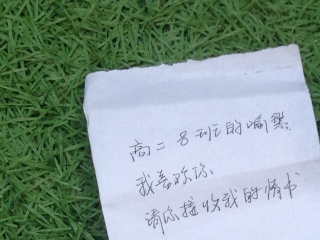 高二8班的喻黙
我喜欢你
请你接收我的情书